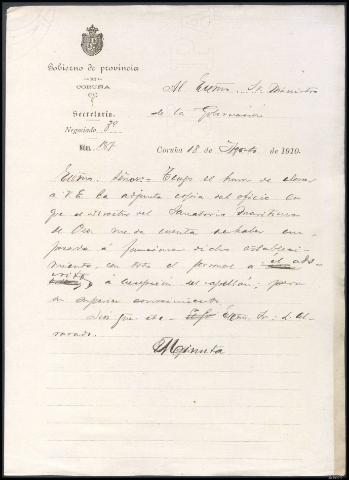 Gobierno de provincia
DE
CORUÑA
Secretaría
Negociado 3º
Núm. 187
Al Excmo. Sr. Ministro
de la Gobernación
Coruña 18 de Agosto de 1910.
Excmo. Señor: Tengo el honor de elevar
a V.E. la adjunta copia del oficio en
que el director del Sanatorio Marítimo
de Oza me da cuenta de haber em-
pezado á funcionar dicho estableci-
miento, con todo el personal a él ads-
crito, á excepción del capellán; para
su superior conocimiento.
Dios gue. etc. Excmo. Sr.:
Minuta